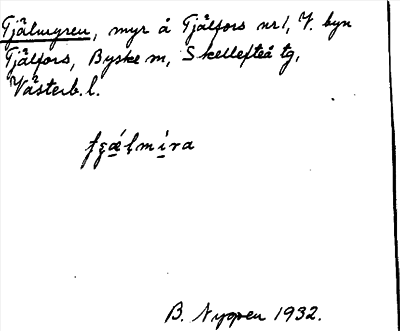 Tjälmyren, myr å Tjälfors nr 1, V. byn
Tjälfors, Byske m, Skellefteå tg,
Västerb. l.
B. Nygren 1932.